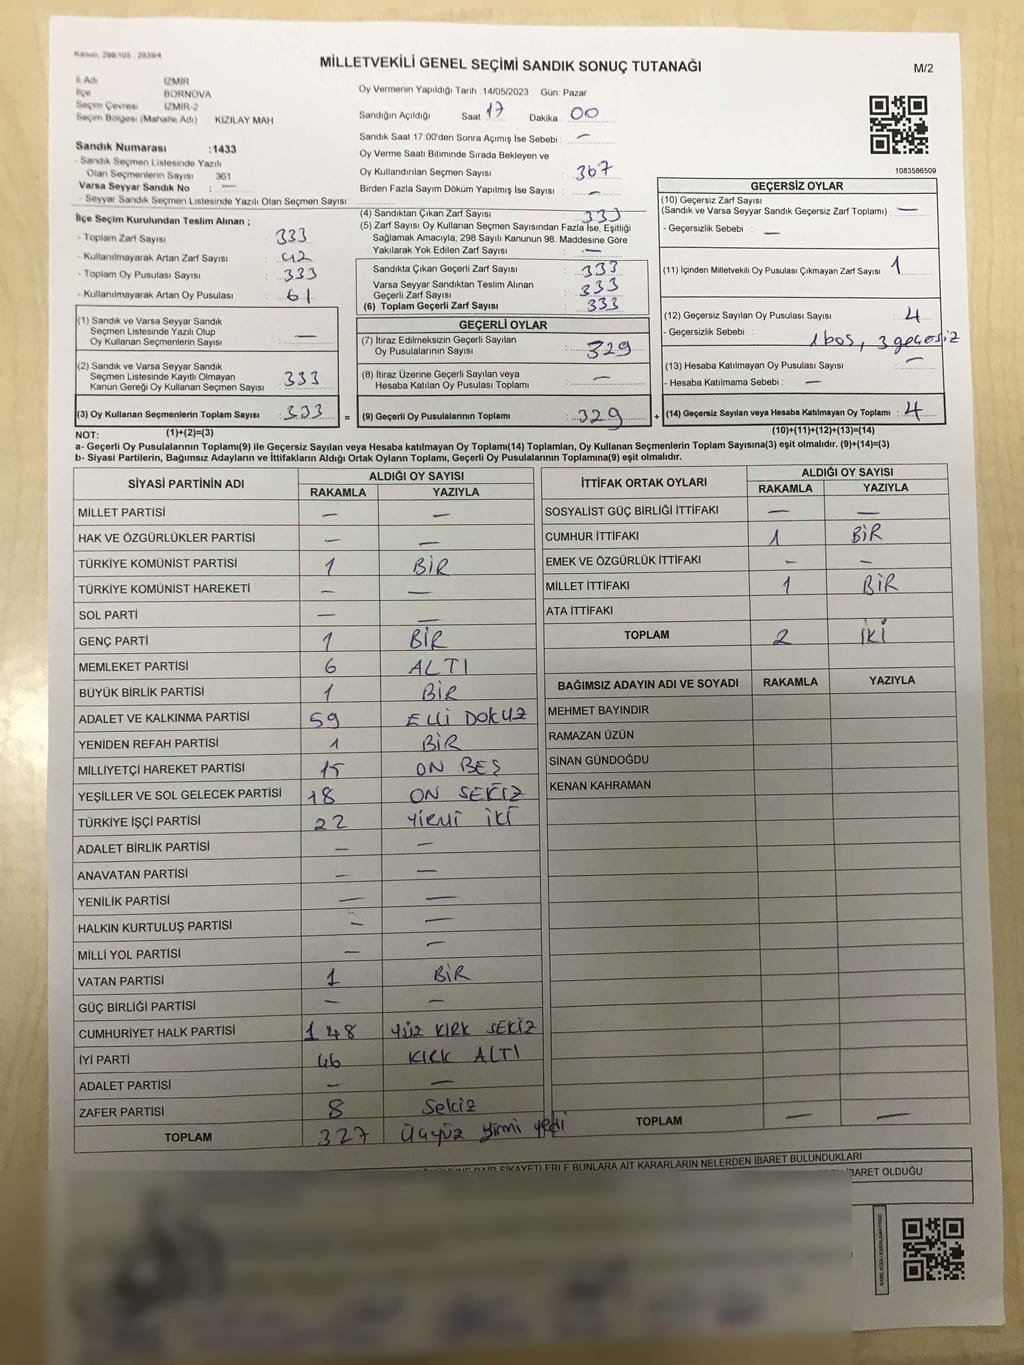 Kanun: 298/105 , 2839/4
MİLLETVEKİLİ GENEL SEÇİMİ SANDIK SONUÇ TUTANAĞI
M/2
İl Adı İZMİR
İlçe BORNOVA
Seçim Çevresi İZMİR-2
Seçim Bölgesi (Mahalle Adı) KIZILAY MAH
Oy Vermenin Yapıldığı Tarih :14/05/2023 Gün: Pazar
Sandığın Açıldığı Saat 17 Dakika 00
Sandık Saat 17:00'den Sonra Açımış İse Sebebi : —
Oy Verme Saati Bitiminde Sırada Bekleyen ve
Oy Kullandırılan Seçmen Sayısı : 367
Birden Fazla Sayım Döküm Yapılmış İse Sayısı : —
1083586509
Sandık Numarası :1433
- Sandık Seçmen Listesinde Yazılı
Olan Seçmenlerin Sayısı 361
Varsa Seyyar Sandık No : —
- Seyyar Sandık Seçmen Listesinde Yazılı Olan Seçmen Sayısı:
İlçe Seçim Kurulundan Teslim Alınan ;
- Toplam Zarf Sayısı : 333
- Kullanılmayarak Artan Zarf Sayısı : 42
- Toplam Oy Pusulası Sayısı : 333
- Kullanılmayarak Artan Oy Pusulası : 61
(1) Sandık ve Varsa Seyyar Sandık
Seçmen Listesinde Yazılı Olup
Oy Kullanan Seçmenlerin Sayısı : —
(2) Sandık ve Varsa Seyyar Sandık
Seçmen Listesinde Kayıtlı Olmayan
Kanun Gereği Oy Kullanan Seçmen Sayısı : 333
(3) Oy Kullanan Seçmenlerin Toplam Sayısı : 333 =
(4) Sandıktan Çıkan Zarf Sayısı : 333
(5) Zarf Sayısı Oy Kullanan Seçmen Sayısından Fazla İse, Eşitliği
Sağlamak Amacıyla, 298 Sayılı Kanunun 98. Maddesine Göre
Yakılarak Yok Edilen Zarf Sayısı : —
Sandıkta Çıkan Geçerli Zarf Sayısı : 333
Varsa Seyyar Sandıktan Teslim Alınan
Geçerli Zarf Sayısı : 333
(6) Toplam Geçerli Zarf Sayısı : 333
GEÇERLİ OYLAR
(7) İtiraz Edilmeksizin Geçerli Sayılan
Oy Pusulalarının Sayısı : 329
(8) İtiraz Üzerine Geçerli Sayılan veya
Hesaba Katılan Oy Pusulası Toplamı : —
(9) Geçerli Oy Pusulalarının Toplamı : 329 +
GEÇERSİZ OYLAR
(10) Geçersiz Zarf Sayısı
(Sandık ve Varsa Seyyar Sandık Geçersiz Zarf Toplamı) : —
- Geçersizlik Sebebi : —
(11) İçinden Milletvekili Oy Pusulası Çıkmayan Zarf Sayısı : 1
(12) Geçersiz Sayılan Oy Pusulası Sayısı : 4
- Geçersizlik Sebebi : 1 boş, 3 geçersiz
(13) Hesaba Katılmayan Oy Pusulası Sayısı : —
- Hesaba Katılmama Sebebi : —
(14) Geçersiz Sayılan veya Hesaba Katılmayan Oy Toplamı : 4
NOT: (1)+(2)=(3) (10)+(11)+(12)+(13)=(14)
a- Geçerli Oy Pusulalarının Toplamı(9) ile Geçersiz Sayılan veya Hesaba katılmayan Oy Toplamı(14) Toplamları, Oy Kullanan Seçmenlerin Toplam Sayısına(3) eşit olmalıdır. (9)+(14)=(3)
b- Siyasi Partilerin, Bağımsız Adayların ve İttifakların Aldığı Ortak Oyların Toplamı, Geçerli Oy Pusulalarının Toplamına(9) eşit olmalıdır.
SİYASİ PARTİNİN ADI ALDIĞI OY SAYISI
RAKAMLA YAZIYLA
MİLLET PARTİSİ — —
HAK VE ÖZGÜRLÜKLER PARTİSİ — —
TÜRKİYE KOMÜNİST PARTİSİ 1 BİR
TÜRKİYE KOMÜNİST HAREKETİ — —
SOL PARTİ — —
GENÇ PARTİ 1 BİR
MEMLEKET PARTİSİ 6 ALTI
BÜYÜK BİRLİK PARTİSİ 1 BİR
ADALET VE KALKINMA PARTİSİ 59 ELLİ DOKUZ
YENİDEN REFAH PARTİSİ 1 BİR
MİLLİYETÇİ HAREKET PARTİSİ 15 ON BEŞ
YEŞİLLER VE SOL GELECEK PARTİSİ 18 ON SEKİZ
TÜRKİYE İŞÇİ PARTİSİ 22 YİRMİ İKİ
ADALET BİRLİK PARTİSİ — —
ANAVATAN PARTİSİ — —
YENİLİK PARTİSİ — —
HALKIN KURTULUŞ PARTİSİ — —
MİLLİ YOL PARTİSİ — —
VATAN PARTİSİ 1 BİR
GÜÇ BİRLİĞİ PARTİSİ — —
CUMHURİYET HALK PARTİSİ 148 YÜZ KIRK SEKİZ
İYİ PARTİ 46 KIRK ALTI
ADALET PARTİSİ — —
ZAFER PARTİSİ 8 Sekiz
TOPLAM 327 Üçyüz yirmi yedi
İTTİFAK ORTAK OYLARI ALDIĞI OY SAYISI
RAKAMLA YAZIYLA
SOSYALİST GÜÇ BİRLİĞİ İTTİFAKI — —
CUMHUR İTTİFAKI 1 BİR
EMEK VE ÖZGÜRLÜK İTTİFAKI — —
MİLLET İTTİFAKI 1 BİR
ATA İTTİFAKI
TOPLAM 2 İKİ
BAĞIMSIZ ADAYIN ADI VE SOYADI RAKAMLA YAZIYLA
MEHMET BAYINDIR
RAMAZAN ÜZÜN
SİNAN GÜNDOĞDU
KENAN KAHRAMAN
TOPLAM — —
DAİR ŞİKAYETLERLE BUNLARA AİT KARARLARIN NELERDEN İBARET BULUNDUKLARI
İBARET OLDUĞU